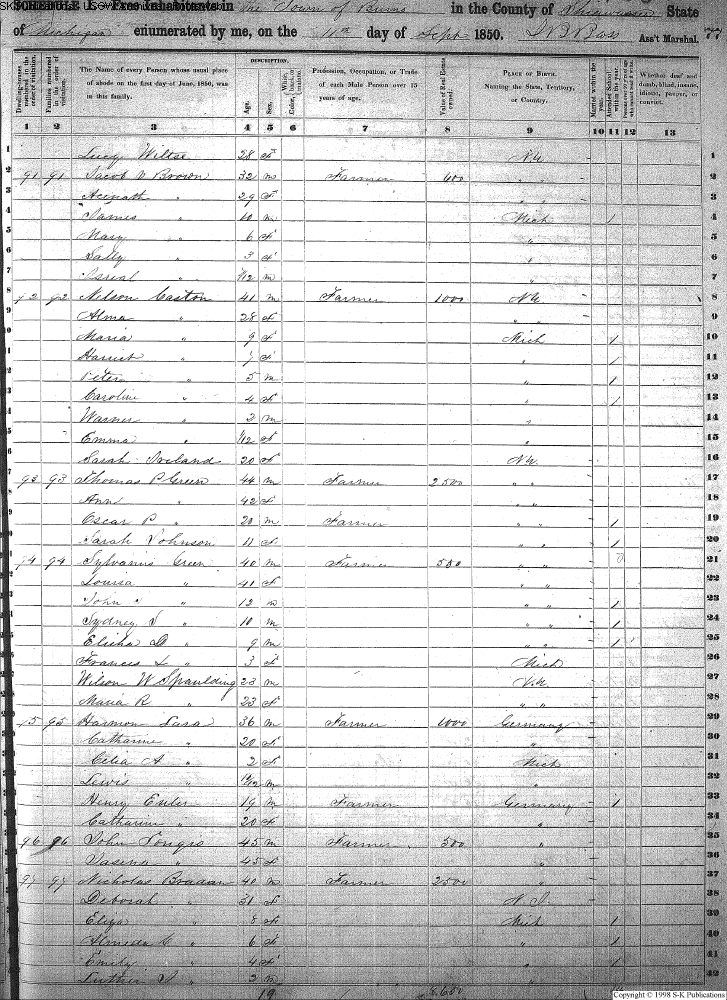 SCHEDULE I. Free Inhabitants in the Town of Burns in the County of Shiawassee State
of Michigan enumerated by me, on the 11th day of Sept 1850. Ass't Marshal. 77
DESCRIPTION.
Dwelling-houses numbered in the order of visitation. Families numbered in the order of visitation. The Name of every Person whose usual place of abode on the first day of June, 1850, was in this family. Age. Sex. Color, White, black, or mulatto. Profession, Occupation, or Trade of each Male Person over 15 years of age. Value of Real Estate owned. PLACE OF BIRTH. Naming the State, Territory, or Country. Married within the year. Attended School within the year. Whether deaf and dumb, blind, insane, idiotic, pauper, or convict.
1 2 3 4 5 6 7 8 9 10 11 12 13
1 Lucy Wiltse 28 f N.Y. 1
2 91 91 Jacob V Brown 32 m Farmer 400 " " 2
3 Acenath " 29 f " " 3
4 James " 10 m Mich 1 4
5 Mary " 6 f " 5
6 Sally " 3 f " 6
7 " /12 m " 7
8 92 92 Nelson Caston 41 m Farmer 1000 N.Y. 8
9 Alma " 28 f " " 9
10 Maria " 9 f Mich 1 10
11 Harriet " 7 f " 1 11
12 Peter " 5 m " 1 12
13 Caroline " 4 f " 1 13
14 Warner " 2 m " 14
15 Emma " /12 f " 15
16 Sarah 20 f N.Y. 16
17 93 93 Thomas P Green 44 m Farmer 2500 " " 17
18 Ann " 42 f " " 18
19 Oscar P " 20 m Farmer " " 1 19
20 Sarah Johnson 11 f " " 1 20
21 94 94 Sylvanus Green 40 m Farmer 500 " " 21
22 Louisa " 41 f " " 22
23 John " 12 m " " 1 23
24 Sydney S " 10 m " " 1 24
25 Elisha D " 9 m " " 1 25
26 Frances L " 3 f Mich 26
27 Wilson W Spaulding 23 m N.Y. 27
28 Maria R " 23 f " " 28
29 95 95 Harmon Lasa 36 m Farmer 1000 Germany 29
30 Catharine " 20 f " 30
31 Celia A " 2 f Mich 31
32 Lewis " /12 m " 32
33 Henry Euler 19 m Farmer Germany 1 33
34 Catharine " 20 f " 34
35 96 96 John 45 m Farmer 300 " 35
36 " 45 f " 36
37 97 97 Nicholas Bradan 40 m Farmer 2500 " 37
38 Deborah " 31 f N.J. 38
39 Eliza " 8 f Mich 1 39
40 Almeda C " 6 f " 1 40
41 Emily " 4 f " 1 41
42 Luther " 2 m " 42
19
Copyright © 1998 S-K Publications